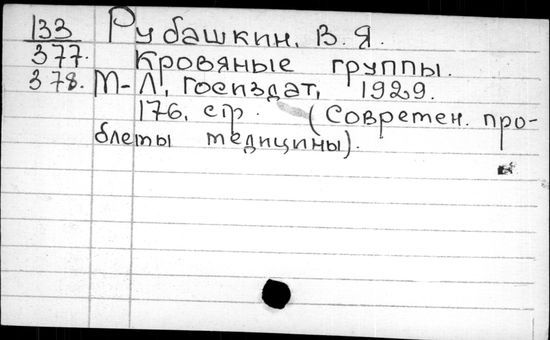 133 Рубашкин, В. Я.
377. Кровяные группы.
378. М-Л, Госиздат, 1929.
176. стр. (Современ. про-
блемы медицины).